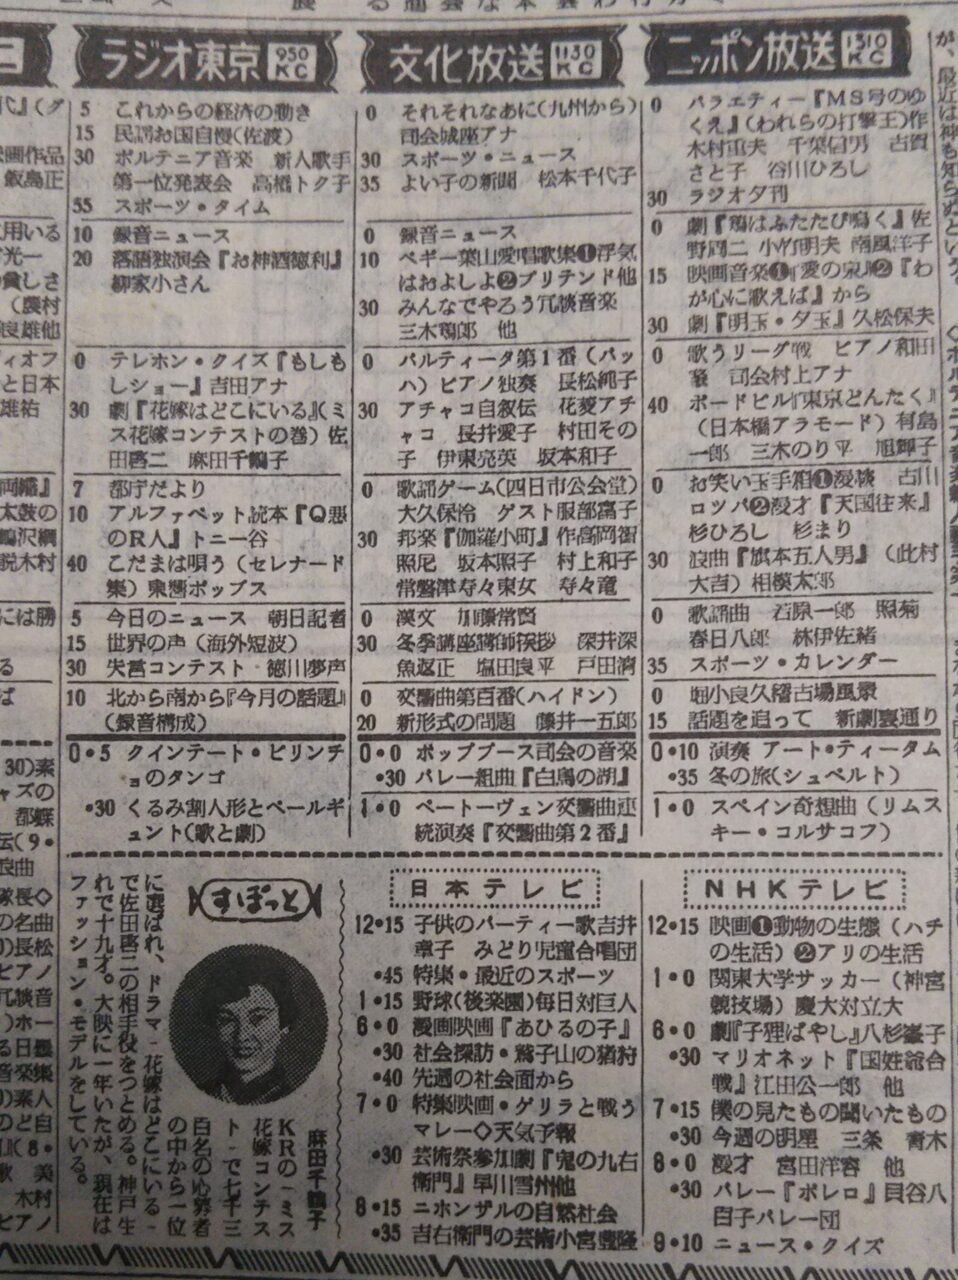 ラジオ東京 950KC
5 これからの経済の動き
15 民謡お国自慢(佐渡)
30 ポルテニア音楽 新人歌手
第一位発表会 高橋トク子
55 スポーツ・タイム
10 録音ニュース
20 落語独演会『お神酒徳利』
柳家小さん
0 テレホン・クイズ『もしも
しショー』吉田アナ
30 劇『花嫁はどこにいる』(ミ
ス花嫁コンテストの巻)佐
田啓二 麻田千鶴子
7 都庁だより
10 アルファベット読本『Q悪
のR人』トニー谷
40 こだまは唄う(セレナード
集)東響ポップス
5 今日のニュース 朝日記者
15 世界の声(海外短波)
30 失言コンテスト 徳川夢声
10 北から南から『今月の話題』
(録音構成)
0・5 クインテート・ピリンチ
ョのタンゴ
・30 くるみ割人形とペールギ
ュント(歌と劇)
文化放送 1130KC
0 それそれなあに(九州から)
司会城座アナ
30 スポーツ・ニュース
35 よい子の新聞 松本千代子
0 録音ニュース
10 ペギー葉山愛唱歌集❶浮気
はおよしよ❷プリテンド他
30 みんなでやろう冗談音楽
三木鶏郎 他
0 パルティータ第1番(バッ
ハ)ピアノ独奏 長松純子
30 アチャコ自叙伝 花菱アチ
ャコ 長井愛子 村田その
子 伊東亮英 坂本和子
0 歌謡ゲーム(四日市公会堂)
大久保怜 ゲスト服部富子
30 邦楽『伽羅小町』作高岡智
照尼 坂本照子 村上和子
常磐津寿々東女 寿々竜
0 漢文 加藤常賢
30 冬季講座講師挨拶 深井深
魚返正 塩田良平 戸田清
0 交響曲第百番(ハイドン)
20 新形式の問題 藤井一五郎
0・0 ポップブース司会の音楽
・30 バレー組曲『白鳥の湖』
1・0 ベートーヴェン交響曲連
続演奏『交響曲第2番』
ニッポン放送 1310KC
0 バラエティー『MS号のゆ
くえ』(われらの打撃王)作
木村重夫 千葉信男 古賀
さと子 谷川ひろし
30 ラジオ夕刊
0 劇『鶏はふたたび鳴く』佐
野周二 小竹明夫 南風洋子
15 映画音楽❶『愛の泉』❷『わ
が心に歌えば』から
30 劇『明玉・夕玉』久松保夫
0 歌うリーグ戦 ピアノ和田
肇 司会村上アナ
40 ボードビル『東京どんたく』
(日本橋アラモード)有島
一郎 三木のり平 旭輝子
0 お笑い玉手箱❶漫談 古川
ロッパ❷漫才『天国往来』
杉ひろし 杉まり
30 浪曲『旗本五人男』(此村
大吉)相模太郎
0 歌謡曲 石原一郎 照菊
春日八郎 林伊佐緒
35 スポーツ・カレンダー
0 堀小良久稽古場風景
15 話題を追って 新劇裏通り
0・10 演奏 アート・ティータム
・35 冬の旅(シューベルト)
1・0 スペイン奇想曲(リムス
キー・コルサコフ)
すぽっと
麻田千鶴子
KRの「ミス
花嫁コンテス
ト」で七千三
百名の応募者
の中から一位
に選ばれ、ドラマ「花嫁はどこにいる」
で佐田啓二の相手役をつとめる。神戸生
れで十九才。大映に一年いたが、現在は
ファッション・モデルをしている。
日本テレビ
12・15 子供のパーティー歌吉井
章子 みどり児童合唱団
・45 特集・最近のスポーツ
1・15 野球(後楽園)毎日対巨人
6・0 漫画映画『あひるの子』
・30 社会探訪・鷲子山の猪狩
・40 先週の社会面から
7・0 特集映画・ゲリラと戦う
マレー◇天気予報
・30 芸術祭参加劇『鬼の九右
衛門』早川雪州他
8・15 ニホンザルの自然社会
・35 吉右衛門の芸術小宮豊隆
NHKテレビ
12・15 映画❶動物の生態(ハチ
の生活)❷アリの生活
1・0 関東大学サッカー(神宮
競技場)慶大対立大
6・0 劇『子狸ばやし』八杉峯子
・30 マリオネット『国姓爺合
戦』江田公一郎 他
7・15 僕の見たもの聞いたもの
・30 今週の明星 三条 青木
8・0 漫才 宮田洋容 他
・30 バレー『ボレロ』貝谷八
百子バレー団
9・10 ニュース・クイズ